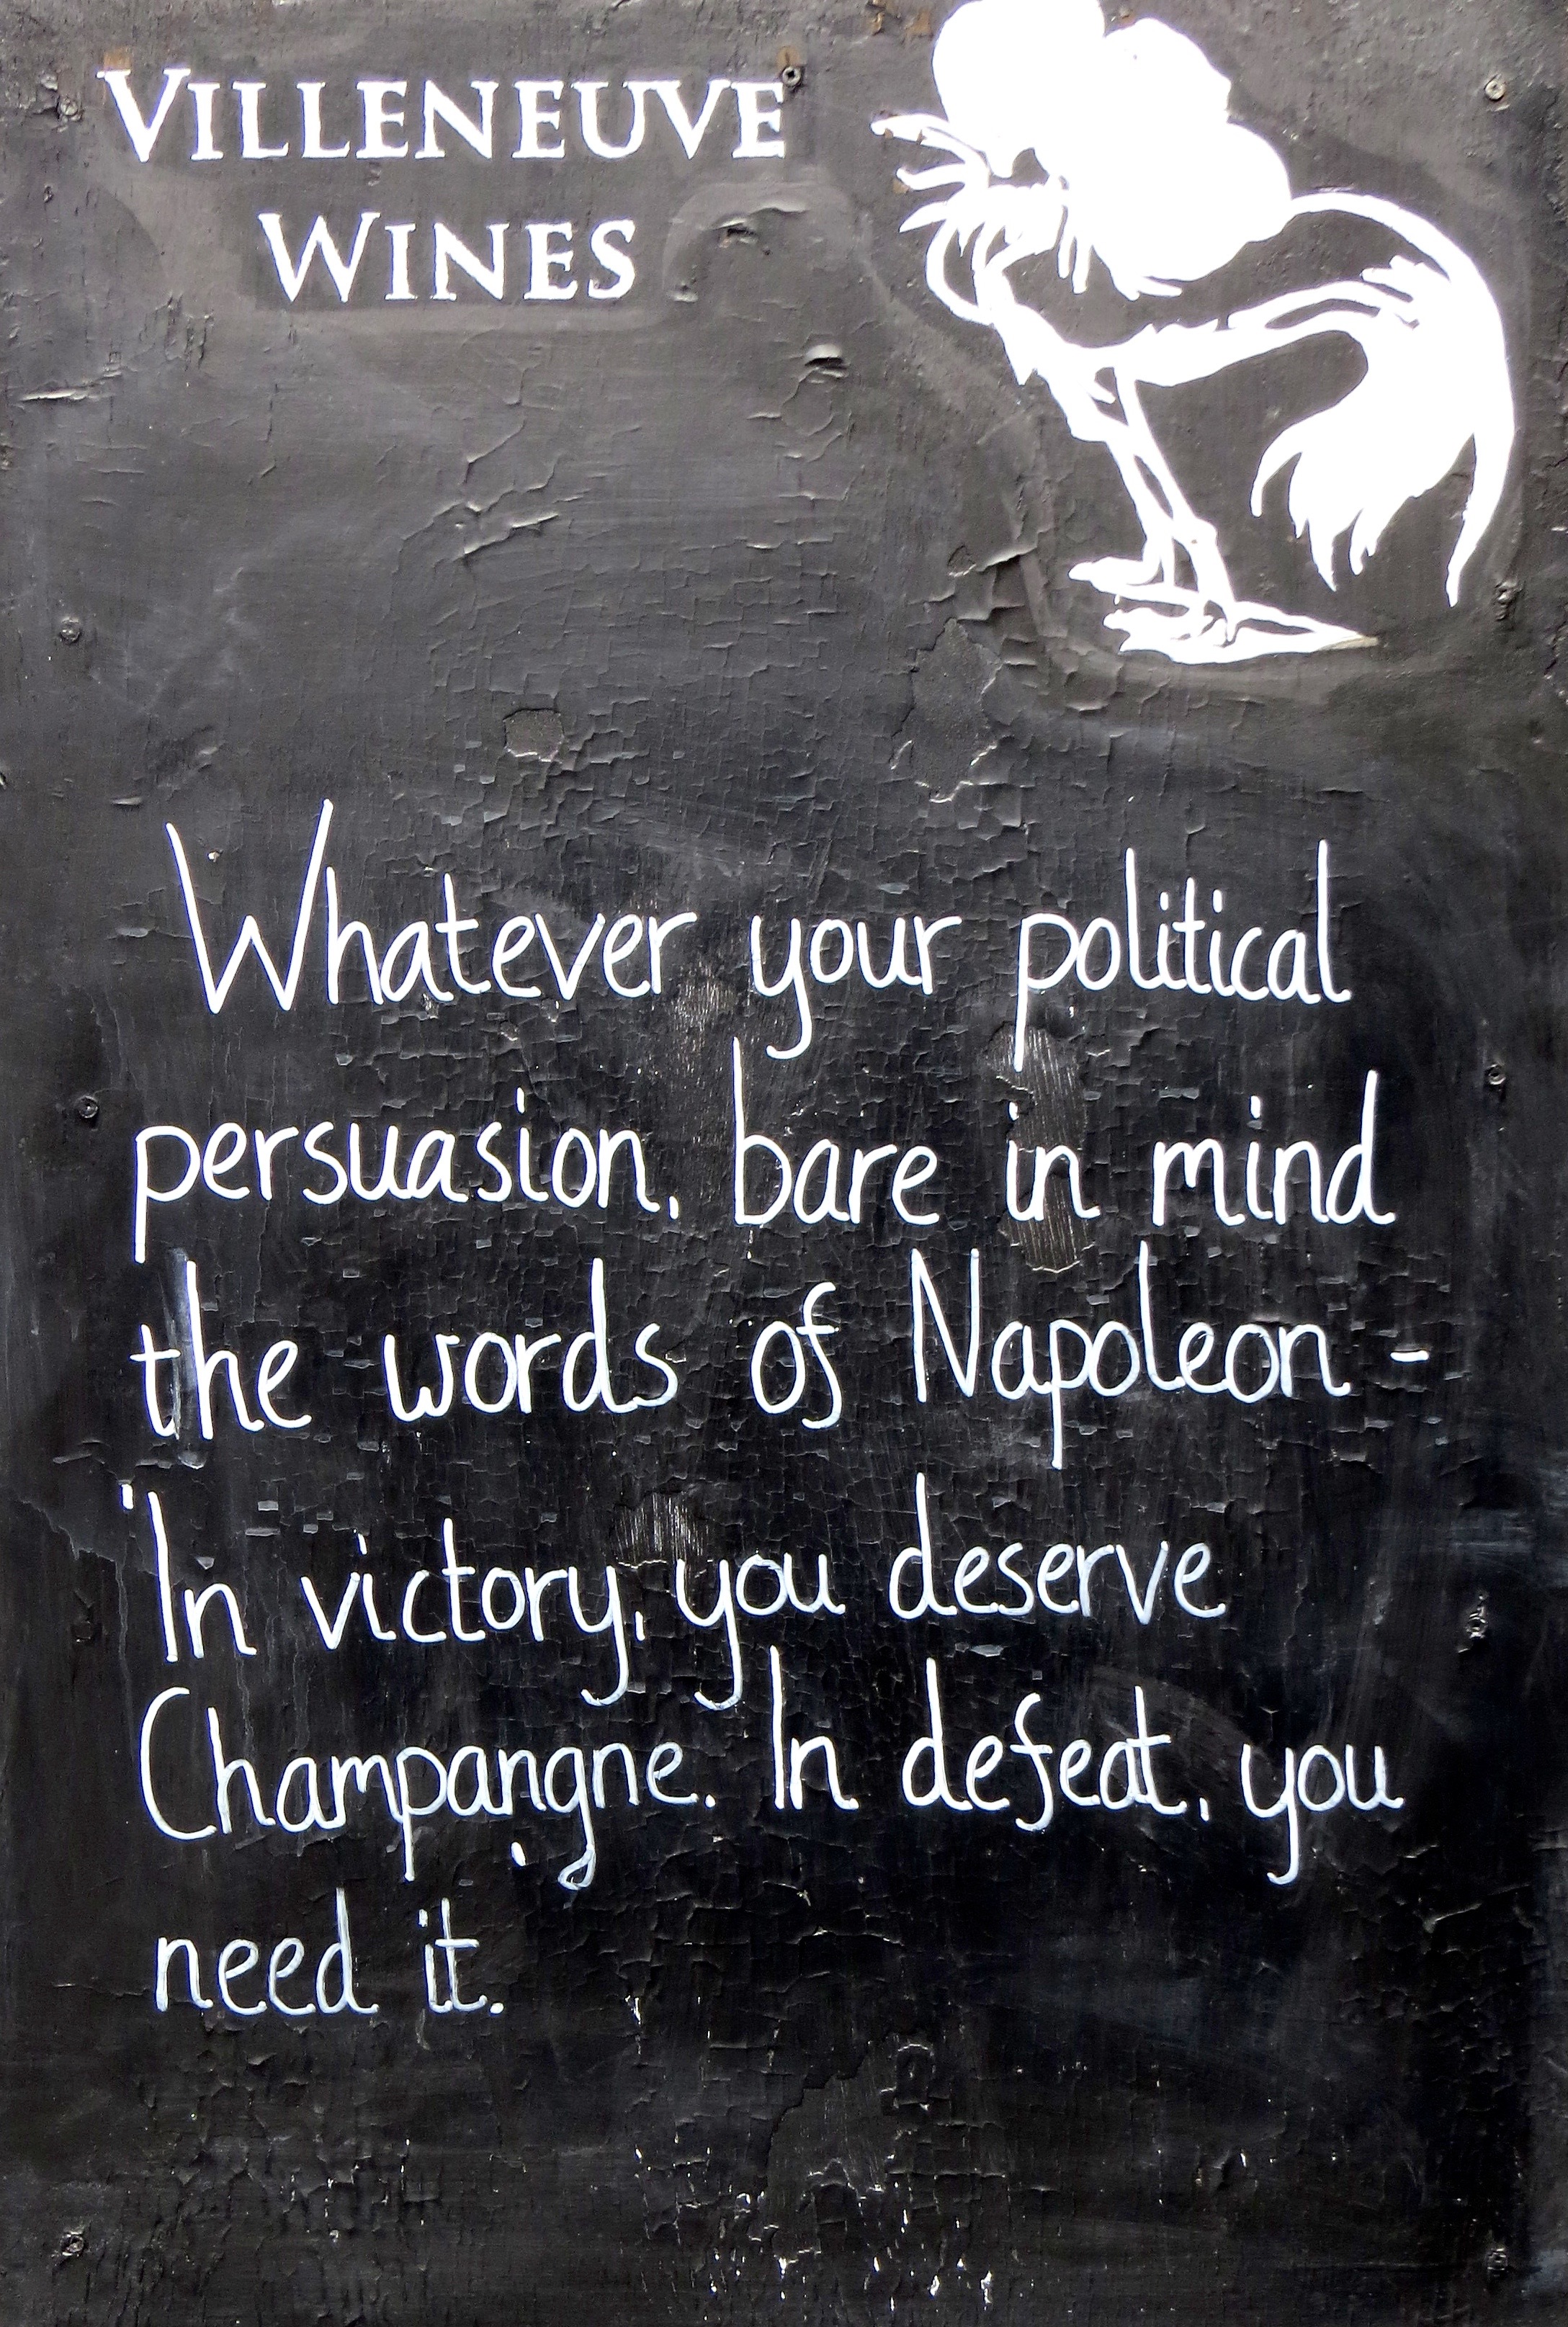 VILLENEUVE
WINES
Whatever your political
persuasion, bare in mind
the words of Napoleon -
'In victory, you deserve
Champangne. In defeat, you
need it.